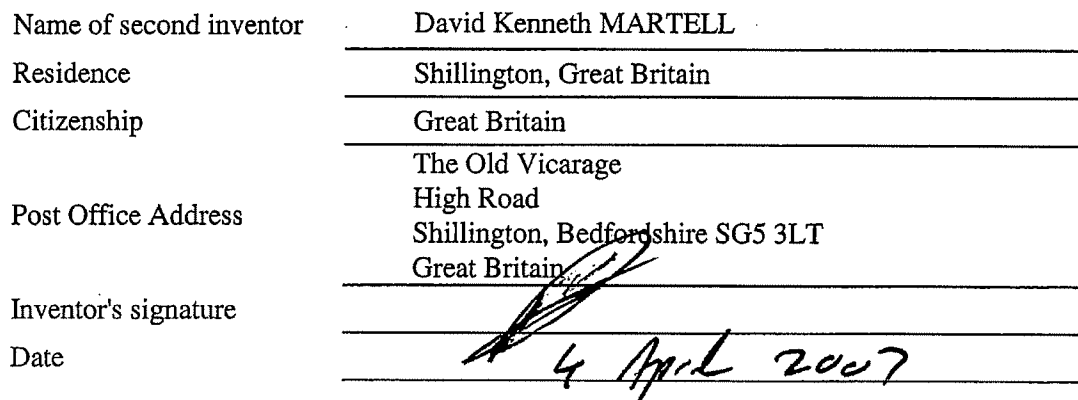 Name of second inventor David Kenneth MARTELL
Residence Shillington, Great Britain
Citizenship Great Britain
Post Office Address The Old Vicarage
High Road
Shillington, Bedfordshire SG5 3LT
Great Britain
Inventor's signature
Date 4 April 2007